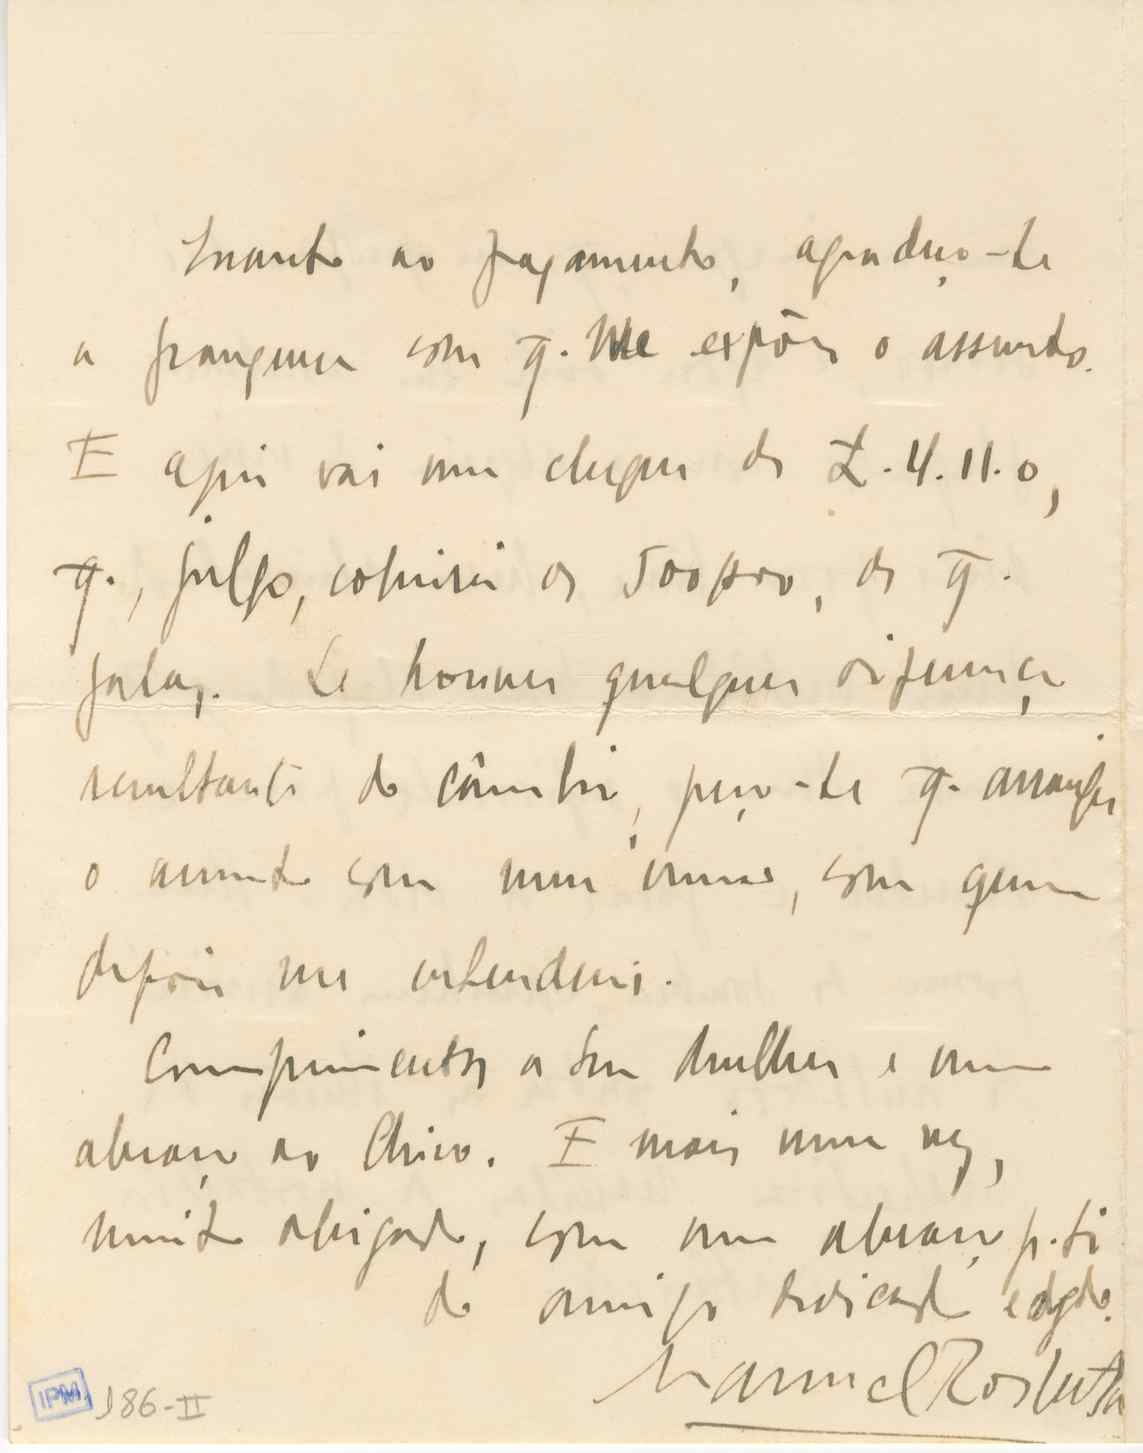 Quanto ao pagamento, agradeço-te
a franqueza com q. me expões o assunto.
E aqui vai um cheque de £.4.11.0,
q., julgo, cobrirá os 500$00, de q.
falas. Se houver qualquer diferença
resultante do câmbio, peço-te q. arranjes
o assunto com meu irmão, com quem
depois me entenderei.
Cumprimentos a tua mulher e um
abraço ao Chico. E mais uma vez,
muito obrigado, com um abraço p. ti
do amigo dedicado e obgdo.
Manuel
IPM 186-II